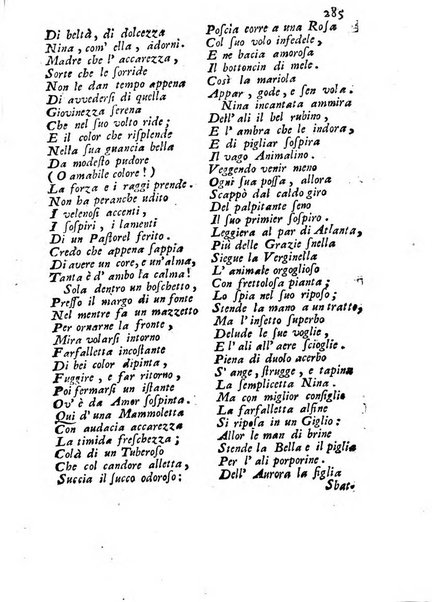 285
Di beltà, di dolcezza
Nina, com' ella, adorni.
Madre che l' accarezza,
Sorte che le sorride
Non le dan tempo appena
Di avvedersi di quella
Giovinezza serena
Che nel suo volto ride;
E il color che risplende
Nella sua guancia bella
Da modesto pudore
(O amabile colore!)
La forza e i raggi prende.
Non ha peranche udito
I velenosi accenti,
I sospiri, i lamenti
Di un Pastorel ferito.
Credo che appena sappia
Di avere un core, e un' alma,
Tanta è d' ambo la calma!
Sola dentro un boschetto,
Presso il margo di un fonte
Nel mentre fa un mazzetto
Per ornarne la fronte,
Mira volarsi intorno
Farfalletta incostante
Di bei color dipinta,
Fuggire, e far ritorno,
Poi fermarsi un istante
Ov' è da Amor sospinta.
Qui d' una Mammoletta
Con audacia accarezza
La timida freschezza;
Colà di un Tuberoso
Che col candore alletta,
Succia il succo odoroso:
Poscia corre a una Rosa
Col suo volo infedele,
E ne bacia amorosa
Il bottoncin di mele.
Così la mariola
Appar, gode, e sen vola.
Nina incantata ammira
Dell' ali il bel rubino,
E l' ambra che le indora,
E di pigliar sospira
Il vago Animalino.
Veggendo venir meno
Ogni sua possa, allora
Scappò dal caldo giro
Del palpitante seno
Il suo primier sospiro.
Leggiera al par di Atlanta,
Più delle Grazie snella
Siegue la Verginella
L' animale orgoglioso
Con frettolosa pianta;
Lo spia nel suo riposo;
Stende la mano a un tratto,
Ma l' insetto superbo
Delude le sue voglie,
E l' ali all' aere scioglie.
Piena di duolo acerbo
S' ange, strugge, e tapina
La semplicetta Nina.
Ma con miglior consiglio
La farfalletta alfine
Si riposa in un Giglio:
Allor le man di brine
Stende la Bella e il piglia
Per l' ali porporine.
Dell' Aurora la figlia
Sbat-